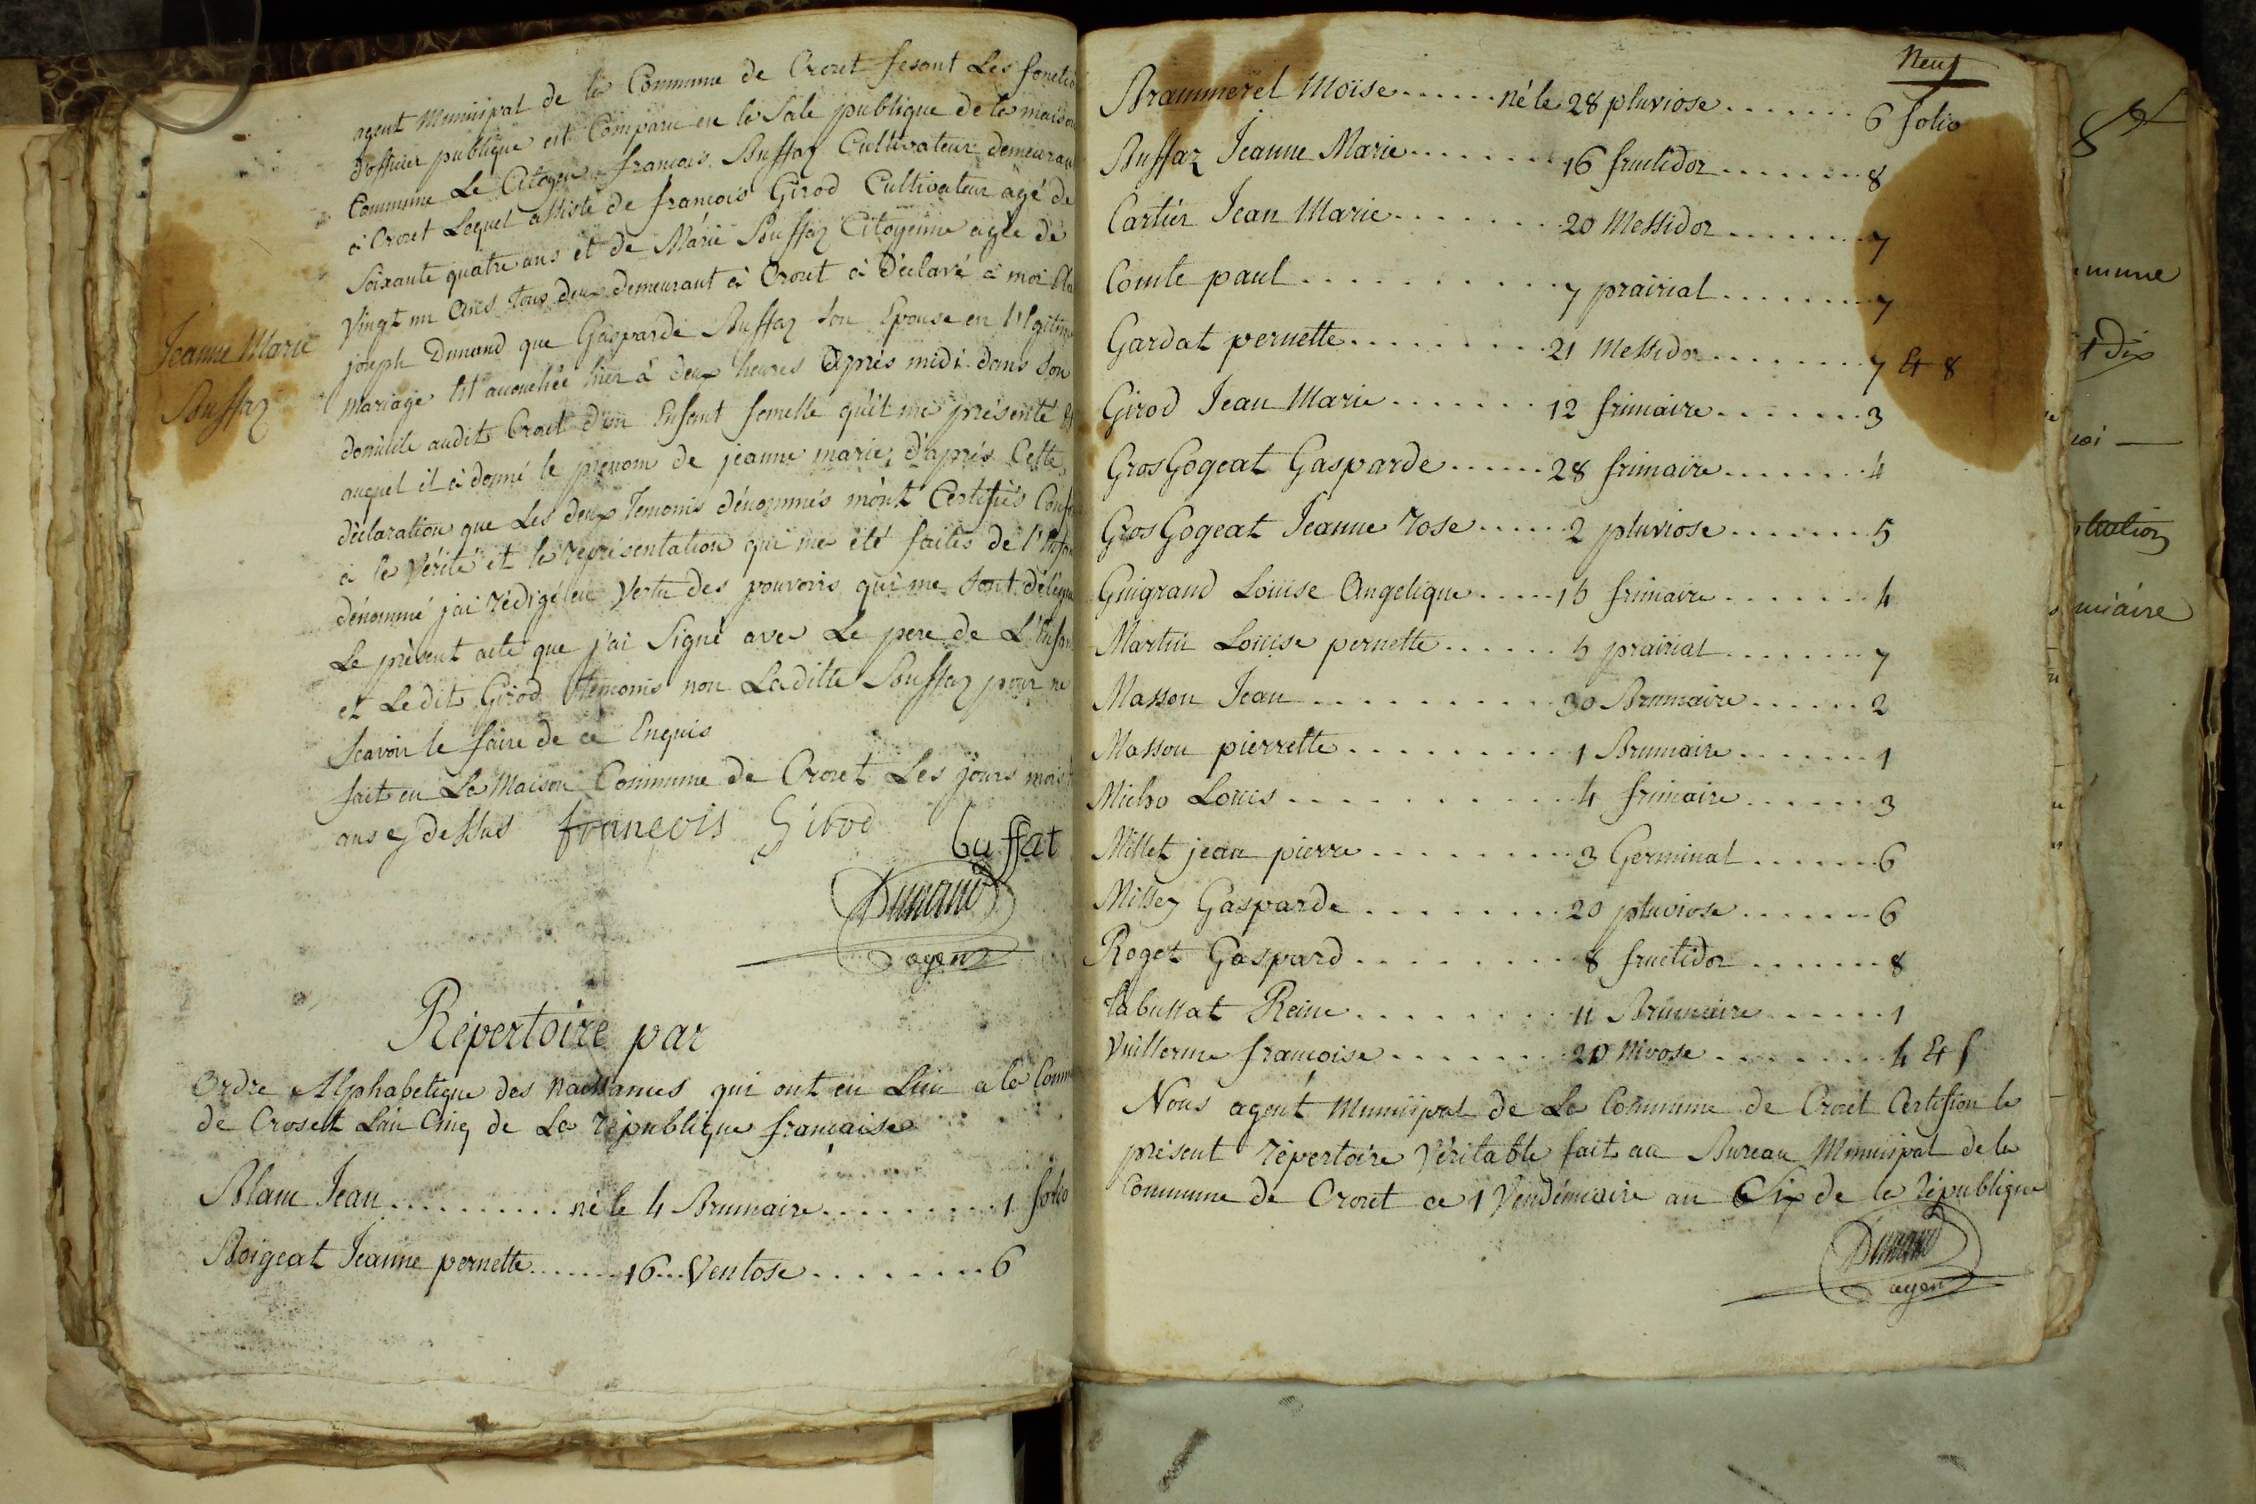 agent Municipal de la Commune de Crozet fesant Les fonctio
d'officier publique est Comparu en la Sale publique de la maison
Commune Le Citoyen francois Buffaz Cultivateur demeuran
à Crozet Lequel assisté de francois Girod Cultivateur agé de
Soixante quatre ans et de Marie Buffaz Citoyenne agée de
vingt un ans tous deux demeurant à Crozet à déclaré à moi
joseph Dunand que Gasparde Buffaz Son Epouse en légitime
mariage Est accouchée hier à deux heures après midi dans Son
domicile audit Crozet d'un Enfant femelle qu'il me présenté
auquel il à donné le prenom de jeanne marie, d'après Cette
déclaration que Les deux Temoins dénommés m'ont Certifiés
à la Vérité et la représentation qui me été faites de l'
dénommé j'ai rédigé en Vertu des pouvoirs qui me Sont
Le présent acte que j'ai Signé avec Le pere de L'Enfan
et Ledit Girod temoins non Laditte Buffaz pour ne
Scavoir le faire de ce Enquis
fait en La Maison Commune de Crozet Les jours mois
ans cy dessus francois Girod
buffat
Dunand
agent
Jeanne Marie
Buffaz
Répertoire par
Ordre Alphabetique des naissances qui ont eu Lieu a la Comm
de Crozet L'an Cinq de La république francaise
Blanc Jean .......... né le 4 Brumaire .......... 1 folio
Boigeat Jeanne pernette ....... 16 Ventose ......... 6
Neuf
Brammerel Moïse ...... né le 28 pluviose ....... 6 folio
Buffaz Jeanne Marie ........ 16 fructidor ....... 8
Cartier Jean Marie ........ 20 Messidor ....... 7
Comte paul .......... 7 prairial ........ 7
Gardat pernette ......... 21 Messidor ....... 7 et 8
Girod Jean Marie ....... 12 frimaire ....... 3
GrosGogeat Gasparde ...... 28 frimaire ....... 4
GrosGogeat Jeanne rose ..... 2 pluviose ....... 5
Guigrand Louise Angelique ..... 15 frimaire ....... 4
Martin Louise pernette ...... 5 prairial ........ 7
Masson Jean .......... 30 Brumaire ...... 2
Masson pierrette ......... 1 Brumaire ....... 1
Micho Louis .......... 4 frimaire ...... 3
Millet jean pierre ........ 3 Germinal ...... 6
Millez Gasparde ........ 20 pluviose ....... 6
Roget Gaspard ........ 8 fructidor ....... 8
Tabussat Reine ........ 11 Brumaire ...... 1
Vuillerme francoise ....... 20 Nivose ........ 4 et 5
Nous agent Municipal de La Commune de Crozet Certifion le
présent répertoire Véritable fait au Bureau Municipal de la
Commune de Crozet ce 1 Vendémiaire an Six de la république
Dunand
agent